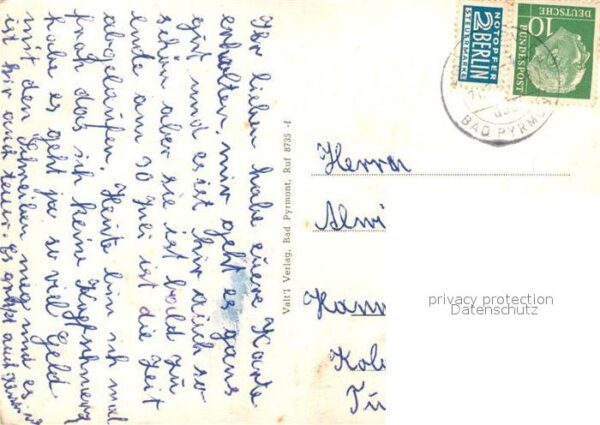 Ihr lieben habe eure Karte
erhalten, mir geht es ganz
gut und es ist hir auch so
schön aber sie ist bald zu
ende am 30 Juni ist die Zeit
abgelaufen. Heute bin ich mal
froh das ich keine Kopfschmerz
habe es geht ja so viel Geld
mit den Schreiben weg und es
ist hir auch teuer. Es grüßt auch
Valt'l Verlag, Bad Pyrmont, Ruf 8735
NOTOPFER
2 BERLIN
STEUERMARKE
10
DEUTSCHE
BUNDESPOST
BAD PYRMO
Herrn
Alwi
Hann
Kole
privacy protection
Datenschutz